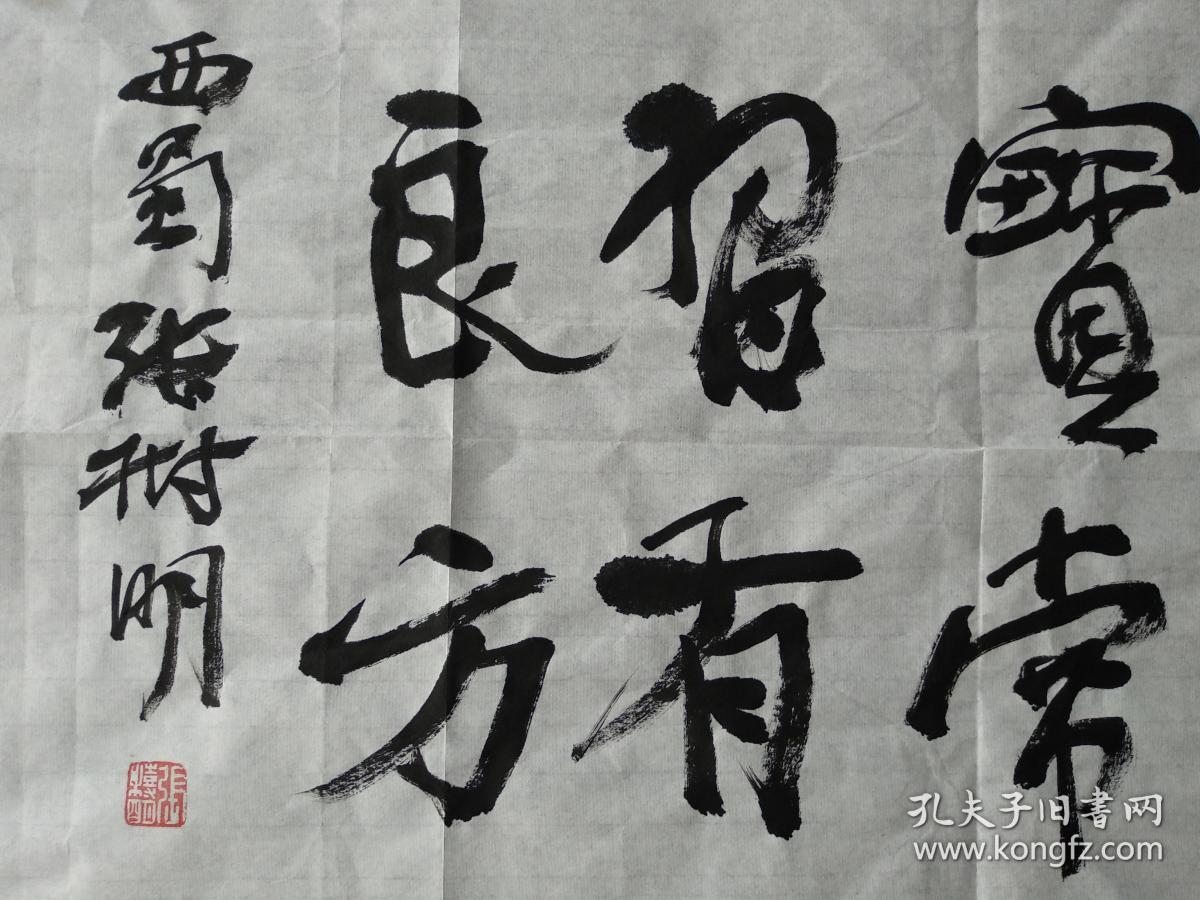 寶常
習有
良方
西蜀張樹明
孔夫子旧書网
www.kongfz.com